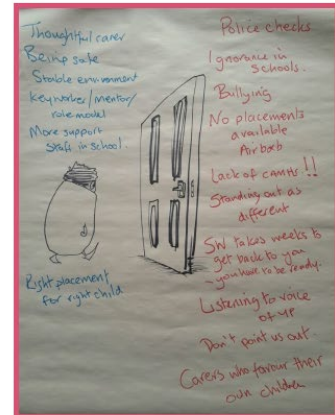 Thoughtful carer
Being safe
Stable environment
Keyworker/mentor/
role model
More support
Staff in school.
Right placement
for right child
Police checks
Ignorance in
schools.
Bullying
No placements
available
Airbnb
Lack of CAMHS!!
Standing out as
different
SW takes weeks to
get back to you
you have to be ready.
Listening to voice
of YP
Don't point us out.
Carers who favour their
own children